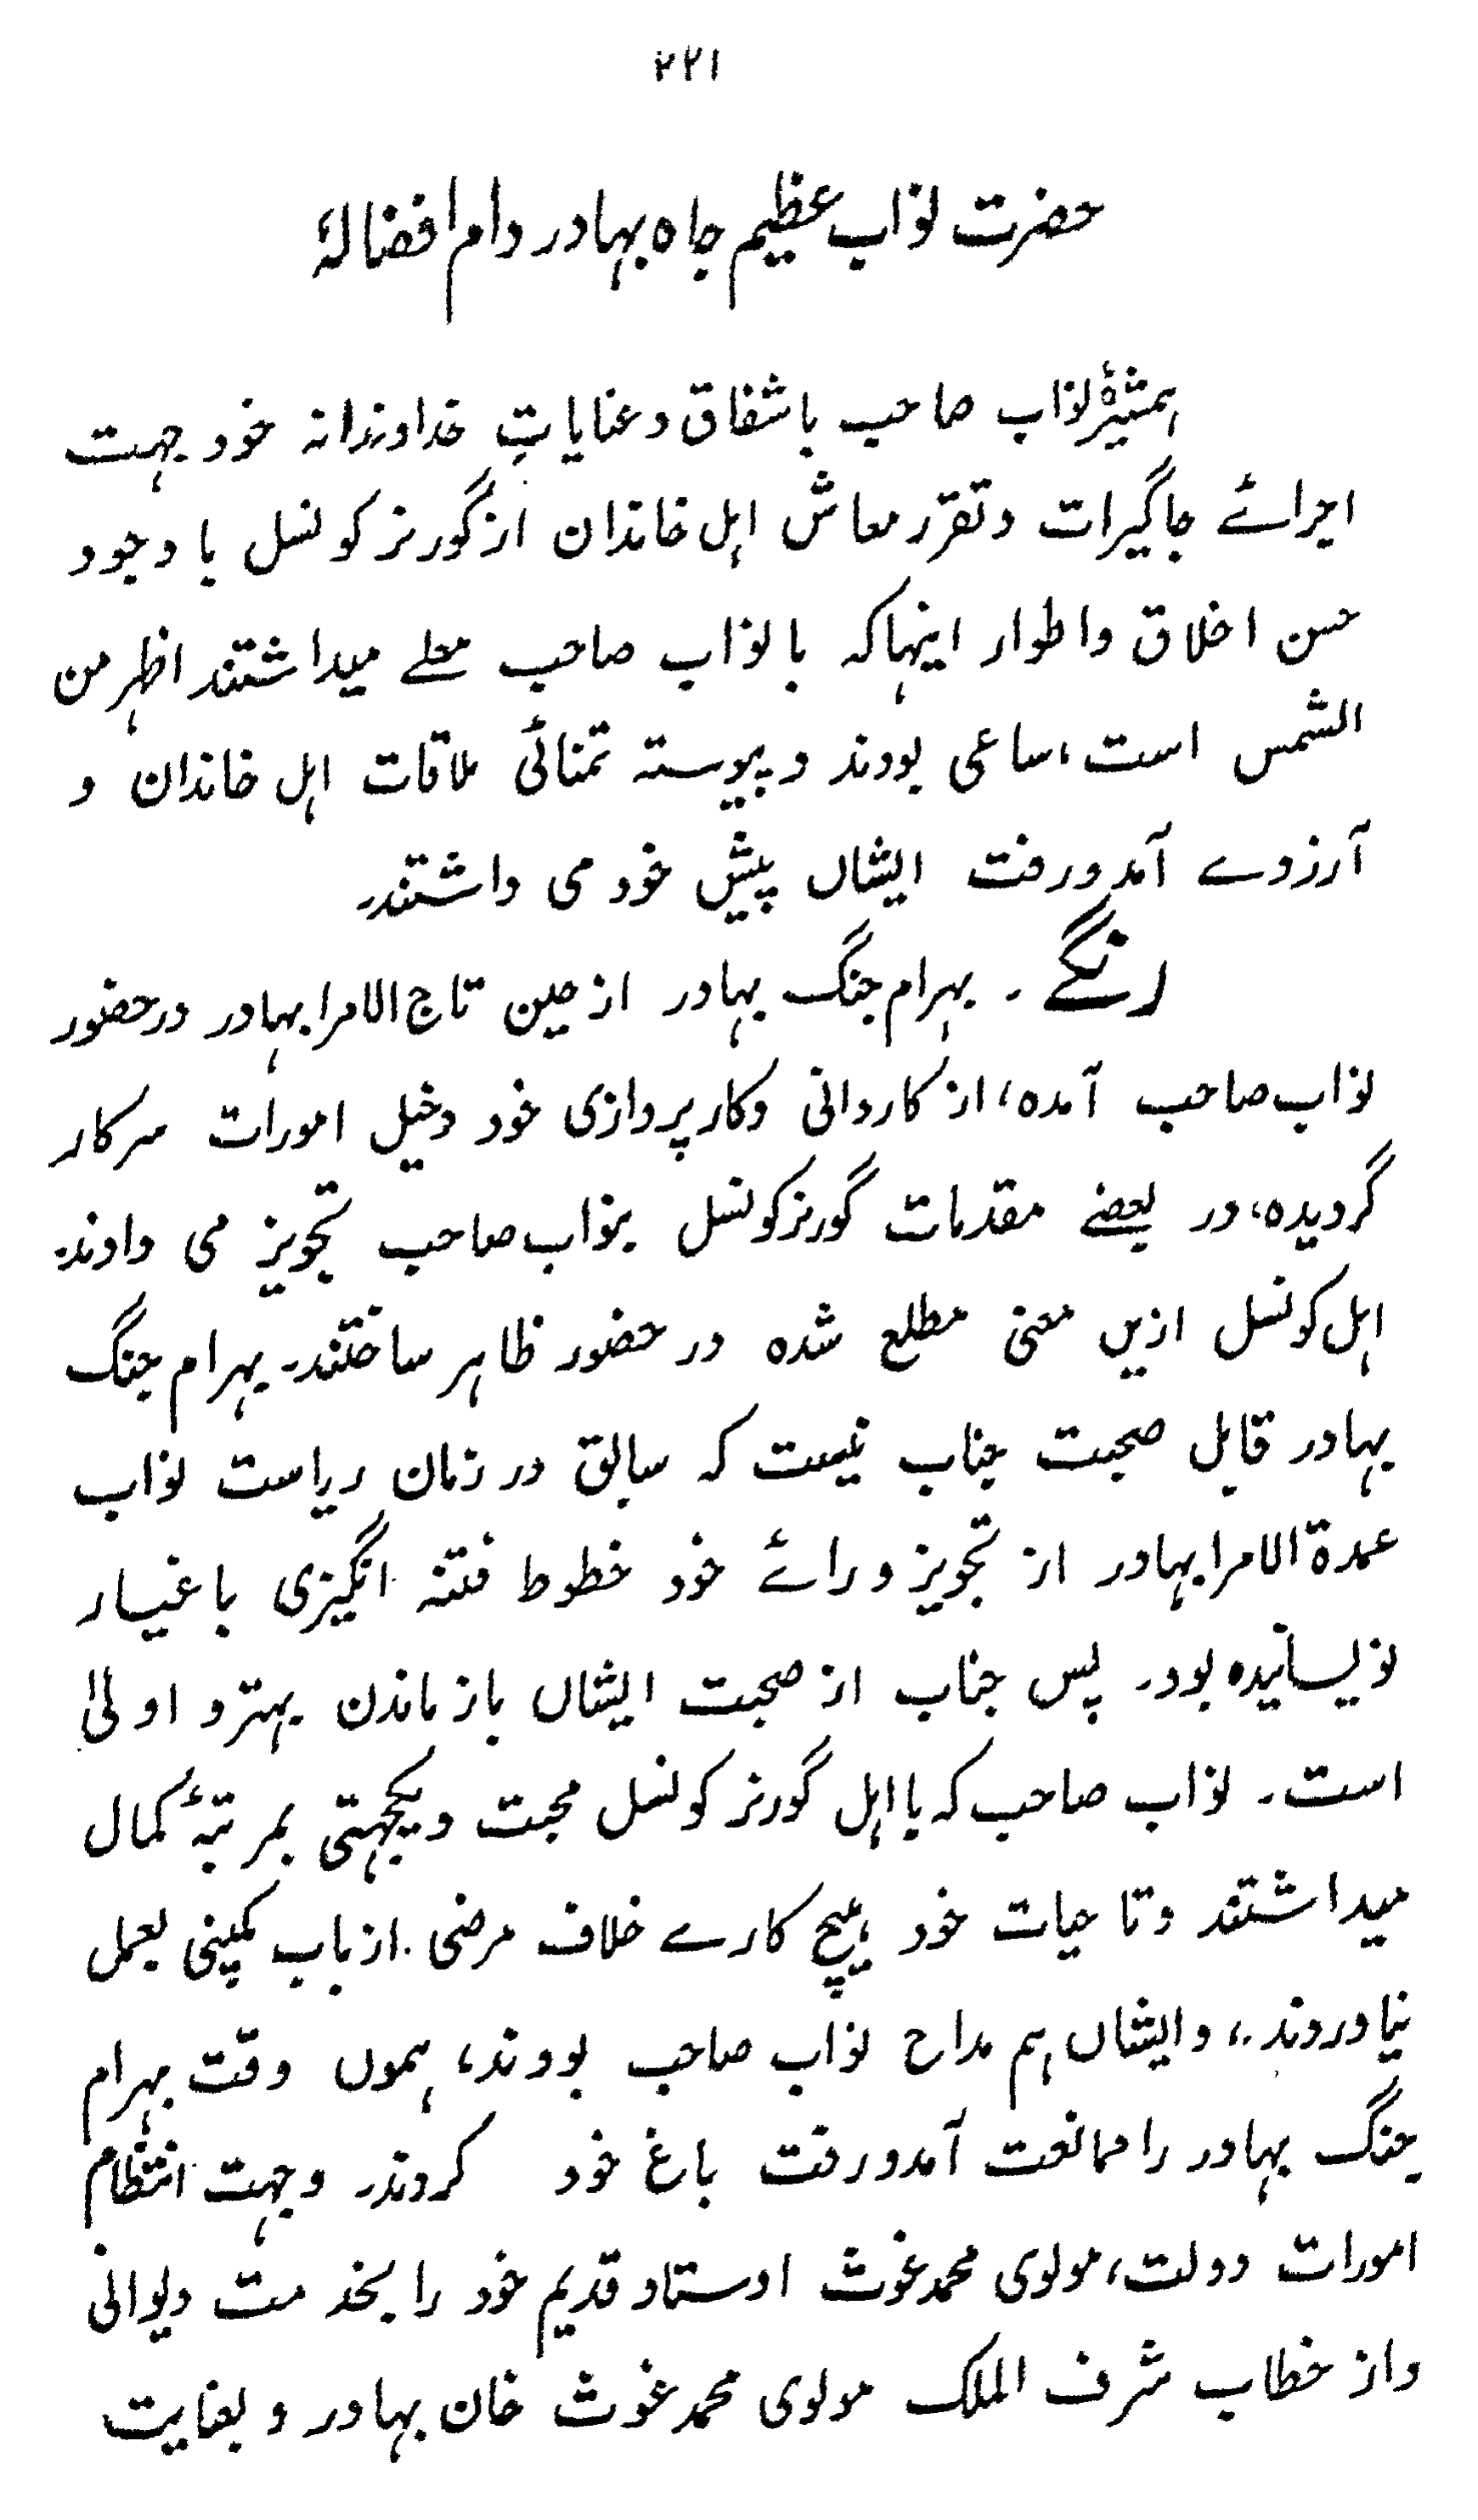 ۲۲۱
حضرت نواب عظیم جاه بہادر دام افضالہٗ
ہمشیرۂ نواب صاحب باشفاق و عنایاتِ خداوندانہ خود جہت
اجرائے جاگیرات و تقرر معاش اہل خاندان از گورنر کونسل با وجود
حسن اخلاق و اطوار اینہا کہ با نواب صاحب معلے میداشتند اظہر من
الشمس است، ساعی بودند و پیوستہ تمنائی ملاقات اہل خاندان و
آرزوے آمد و رفت ایشاں پیش خود می داشتند۔
رنگے ۔ بہرام جنگ بہادر از حین تاج الامرا بہادر در حضور
نواب صاحب آمده، از کاردانی و کار پردازی خود دخیل امورات سرکار
گردیده، در بعضے مقدمات گورنر کونسل بنواب صاحب تجویز می دادند۔
اہل کونسل ازیں معنی مطلع شده در حضور ظاہر ساختند۔ بہرام جنگ
بہادر قابل صحبت جناب نیست کہ سابق در زمان ریاست نواب
عمدة الامرا بہادر از تجویز و رائے خود خطوط فتنہ انگیزی باغیار
نویسانیده بود۔ پس جناب از صحبت ایشاں باز ماندن بہتر و اولیٰ
است۔ نواب صاحب کہ با اہل گورنر کونسل محبت و یکجہتی بمرتبۂ کمال
میداشتند و تا حیات خود ہیچ کارے خلاف مرضی ارباب کمپنی بعمل
نیاوردند،، و ایشاں ہم مداح نواب صاحب بودند، ہموں وقت بہرام
جنگ بہادر را ممانعت آمد و رفت باغ خود کردند۔ و جہت انتظام
امورات دولت، مولوی محمد غوث اوستاد قدیم خود را بخدمت دیوانی
و از خطاب شرف الملک مولوی محمد غوث خان بہادر و بعنایت